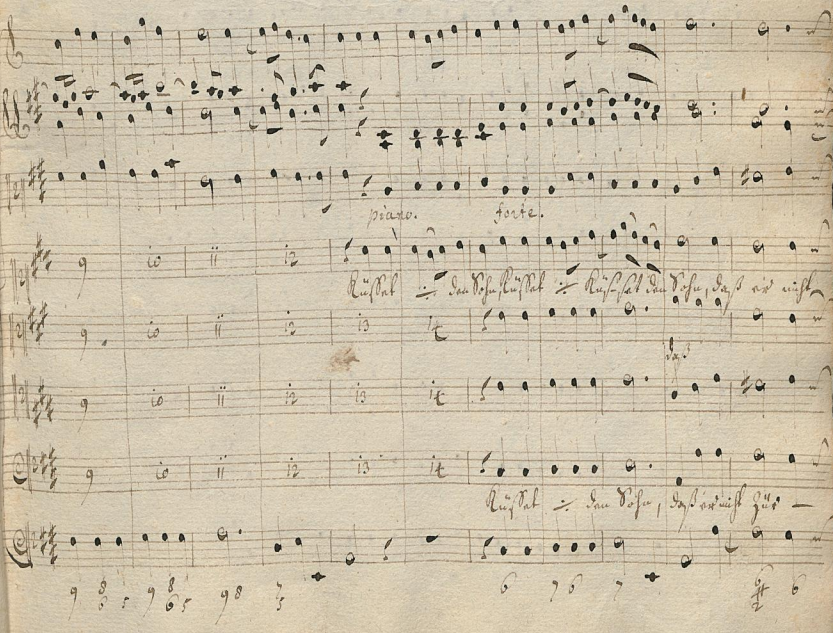 piano. forte.
9 10 11 12
Küsset den Sohn, Küsset Küsset den Sohn, daß er nicht
9. 10 11 12 13 14
daß
9 10 11 12 13 14
9 10 11 12 13 14
Küsset den Sohn, daß er nicht zür –
9 8 6 5 9 8 6 5 9 8 7 5 6 7 6 7 6 4 2 6